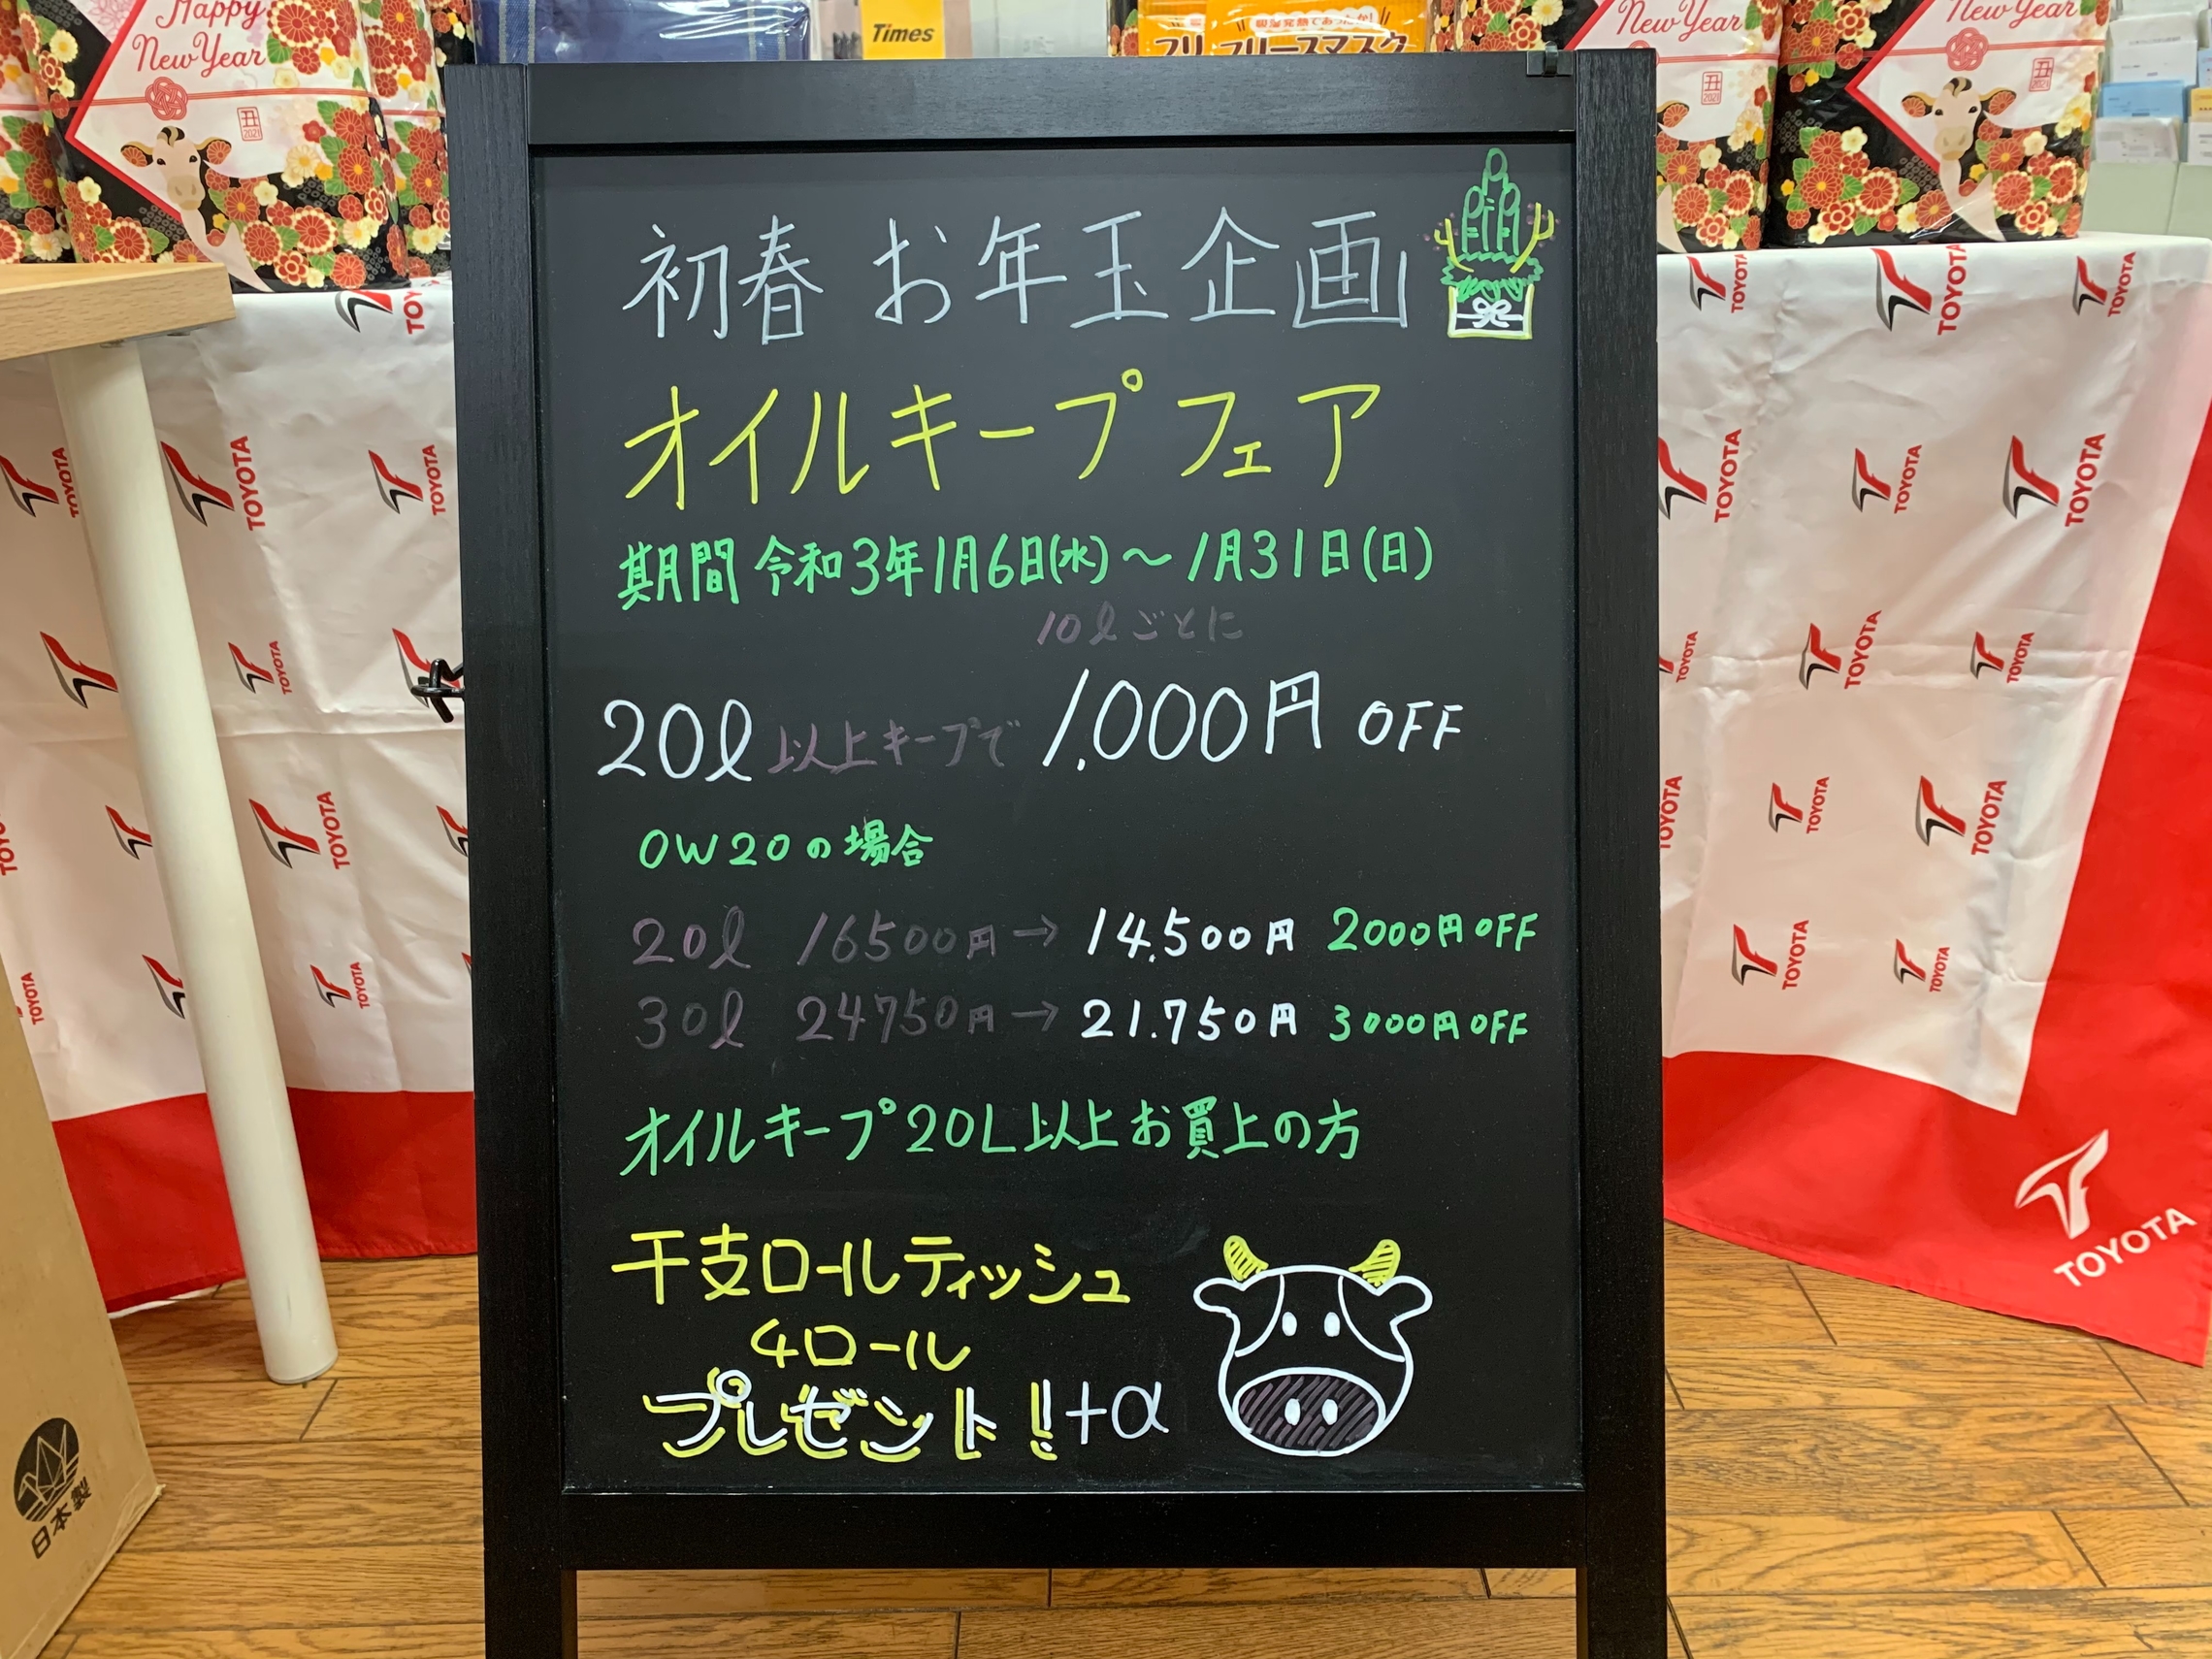 Happy
New Year
丑
2021
Times
フリースマスク
New Year
丑
New Year
丑
初春 お年玉企画
オイルキープフェア
期間 令和3年1月6日(水)～1月31日(日)
10ℓごとに
20ℓ以上キープで 1,000円 OFF
0W20の場合
20ℓ 16500円→14,500円 2000円OFF
30ℓ 24750円→21.750円 3000円OFF
オイルキープ20L以上お買上の方
干支ロールティッシュ
4ロール
プレゼント!+α
TOYOTA
TOYOTA
日本製